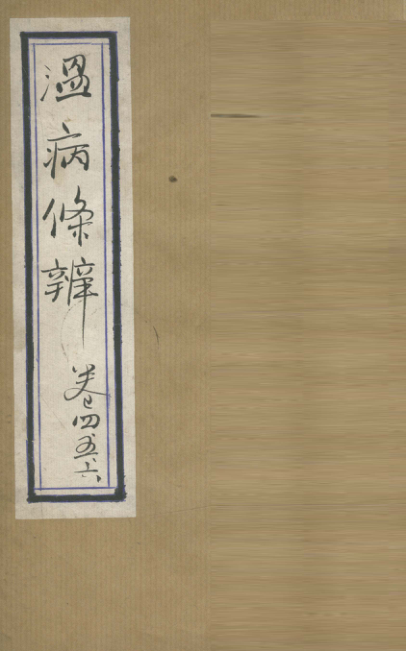 溫病條辨
卷四五六